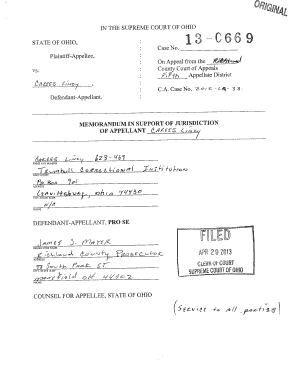 ORIGINAL
IN THE SUPREME COURT OF OHIO
13-0669
STATE OF OHIO,
Case No.
Plaintiff-Appellee,
On Appeal from the Richland
County Court of Appeals
vs.
Fifth Appellate District
Linzy,
C.A. Case No. 2012-CA-33
Defendant-Appellant.
MEMORANDUM IN SUPPORT OF JURISDICTION
OF APPELLANT Linzy
Linzy 623-469
Trumbull Correctional Institution
PO Box 901
Leavittsburg, Ohio 44430
N/A
DEFENDANT-APPELLANT, PRO SE
James J. Mayer
Richland County Prosecutor
38 South Park St
Mansfield OH 44902
FILED
APR 29 2013
CLERK OF COURT
SUPREME COURT OF OHIO
COUNSEL FOR APPELLEE, STATE OF OHIO
(Service to all parties)